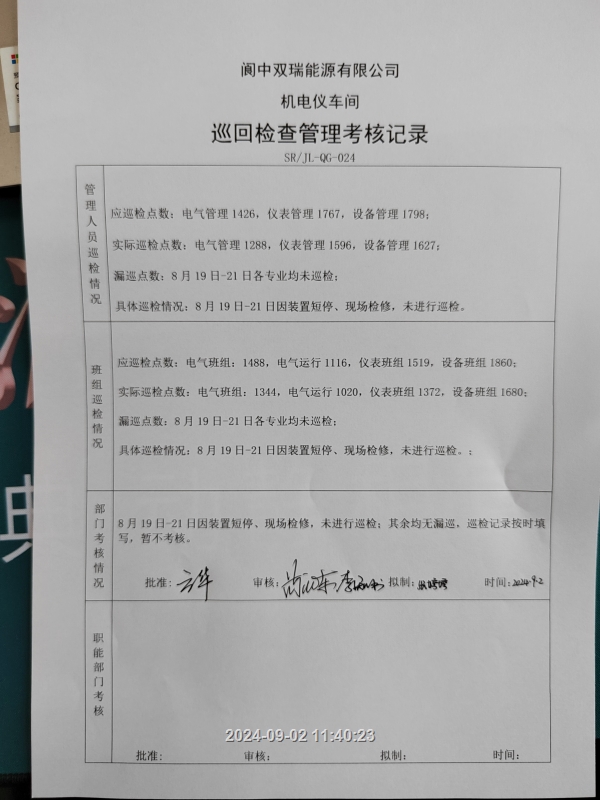 阆中双瑞能源有限公司
机电仪车间
巡回检查管理考核记录
SR/JL-QG-024
管理人员巡检情况
应巡检点数：电气管理1426，仪表管理1767，设备管理1798；
实际巡检点数：电气管理1288，仪表管理1596，设备管理1627；
漏巡点数：8月19日-21日各专业均未巡检；
具体巡检情况：8月19日-21日因装置短停、现场检修，未进行巡检。
班组巡检情况
应巡检点数：电气班组：1488，电气运行1116，仪表班组1519，设备班组1860；
实际巡检点数：电气班组：1344，电气运行1020，仪表班组1372，设备班组1680；
漏巡点数：8月19日-21日各专业均未巡检；
具体巡检情况：8月19日-21日因装置短停、现场检修，未进行巡检。；
部门考核情况
8月19日-21日因装置短停、现场检修，未进行巡检；其余均无漏巡，巡检记录按时填
写，暂不考核。
批准： 审核： 拟制： 时间：2024-9-2
职能部门考核
批准： 审核： 拟制： 时间：
2024-09-02 11:40:23
典